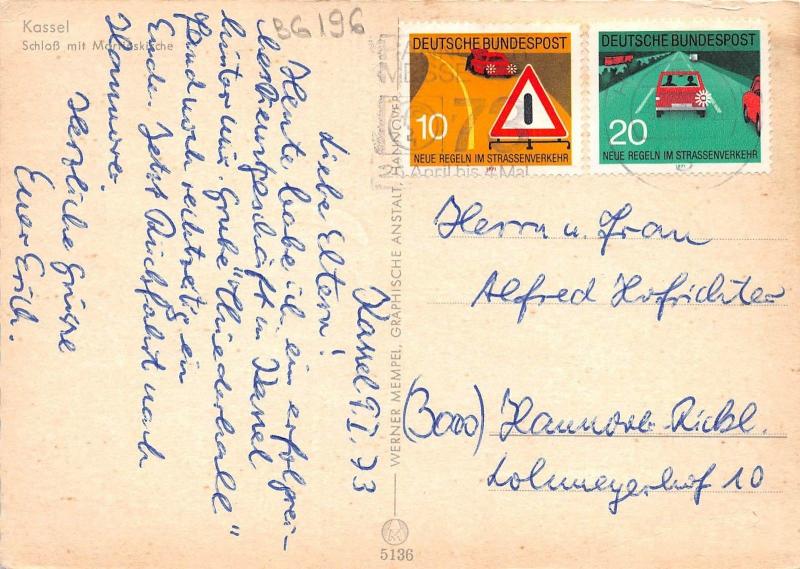 Kassel
Schloß mit Martinskirche
BG 196
Kassel 9.I.73
Liebe Eltern!
Heute habe ich ein erfolgrei-
bestreingeschäft in Kassel
hinter mir. Grube "Thiederhall"
fand noch rechtzeitig ein
Ende. Jetzt Rückfahrt nach
Hannover.
Herzliche Grüße
Euer Erich.
WERNER MEMPEL, GRAPHISCHE ANSTALT, HANNOVER
5136
DEUTSCHE BUNDESPOST
10
NEUE REGELN IM STRASSENVERKEHR
DEUTSCHE BUNDESPOST
20
NEUE REGELN IM STRASSENVERKEHR
MESSE
April bis 4. Mai
Herrn u. Frau
Alfred Hofrichter
(3000) Hannover-Rickl.
Lohmeyerhof 10